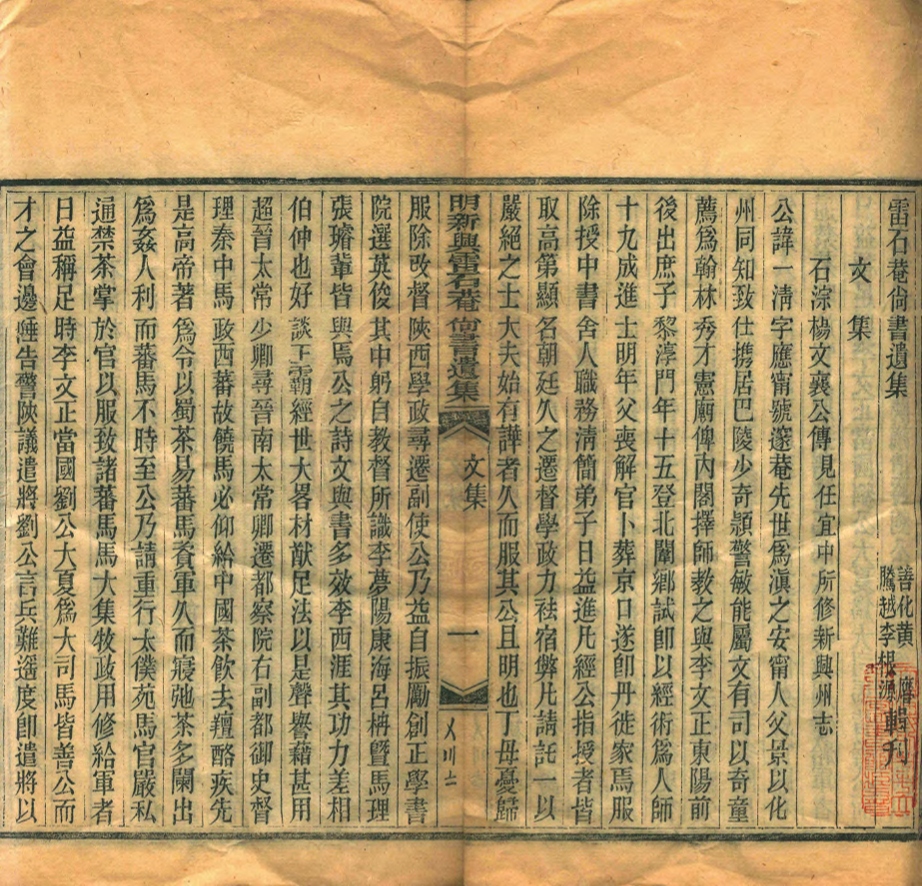 雷石菴尚書遺集
善化黄 膺
騰越李根源 輯刊
文集
石淙楊文襄公傳見任宜中所修新興州志
公諱一淸字應甯號邃菴先世爲滇之安甯人父景以化
州同知致仕攜居巴陵少奇頴警敏能屬文有司以奇童
薦爲翰林秀才憲廟俾內閣擇師教之與李文正東陽前
後出庶子黎淳門年十五登北闈鄉試卽以經術爲人師
十九成進士明年父喪解官卜葬京口遂卽丹徙家焉服
除授中書舍人職務淸簡弟子日益進凡經公指授者皆
取高第顯名朝廷久之遷督學政力祛宿弊凡請託一以
嚴絕之士大夫始有譁者久而服其公且明也丁母憂歸
明新興雷石菴尚書遺集 文集 一 〤〣〢
服除改督陜西學政尋遷副使公乃益自振勵創正學書
院選英俊其中躬自教督所識李夢陽康海呂柟曁馬理
張璿輩皆與焉公之詩文與書多效李西涯其功力差相
伯仲也好談王霸經世大畧材猷足法以是聲譽藉甚用
超晉太常少卿尋晉南太常卿遷都察院右副都御史督
理秦中馬政西蕃故饒馬必仰給中國茶飮去羶酪疾先
是高帝著爲令以蜀茶易蕃馬資軍久而寢弛茶多闌出
爲姦人利而蕃馬不時至公乃請重行太僕苑馬官嚴私
通禁茶掌於官以服致諸蕃馬馬大集牧政用修給軍者
日益稱足時李文正當國劉公大夏爲大司馬皆善公而
才之會邊陲告警陜議遣將劉公言兵難遥度卽遣將以